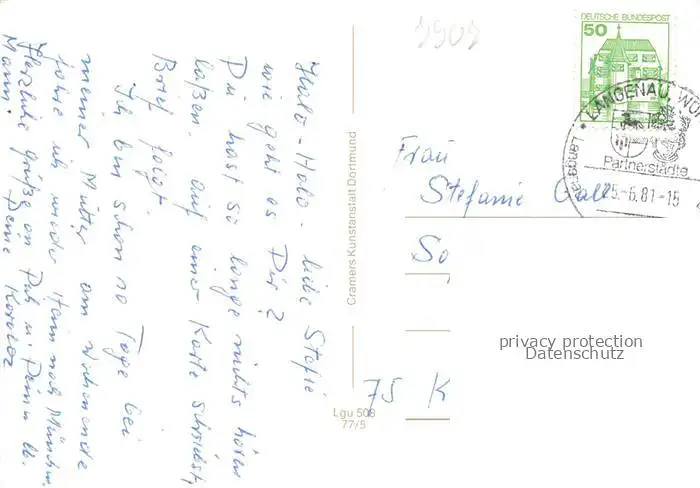 Halo - Halo - liebe Stefie
wie geht es Dir?
Du hast so lange nichts hören
laßen. auf einer Karte schreibst,
Brief folgt.
Ich bin schon 10 Tage bei
meiner Mutter am Wochenende
fahre ich wieder Heim nach München.
Herzliche Grüße an Dich u. Deinen lb.
Mann. Deine
Cramers Kunstanstalt Dortmund
Lgu 508
77/5
DEUTSCHE BUNDESPOST
50
LANGENAU, WÜ
Langenau
Partnerstädte
25.-6.81-15
Frau
Stefanie Call
So
75 K
privacy protection
Datenschutz